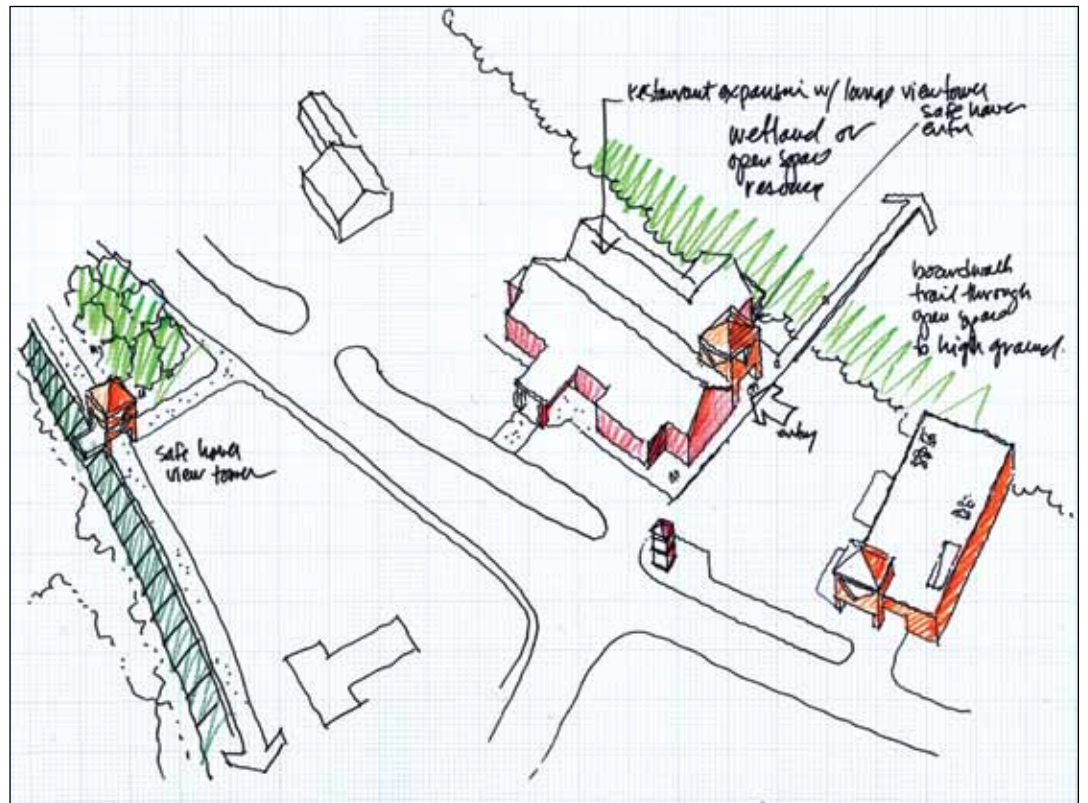 restaurant expansion w/ large view tower
safe haven
entry
wetland or
open space
resource
boardwalk
trail through
open space
to high ground.
entry
safe haven
view tower